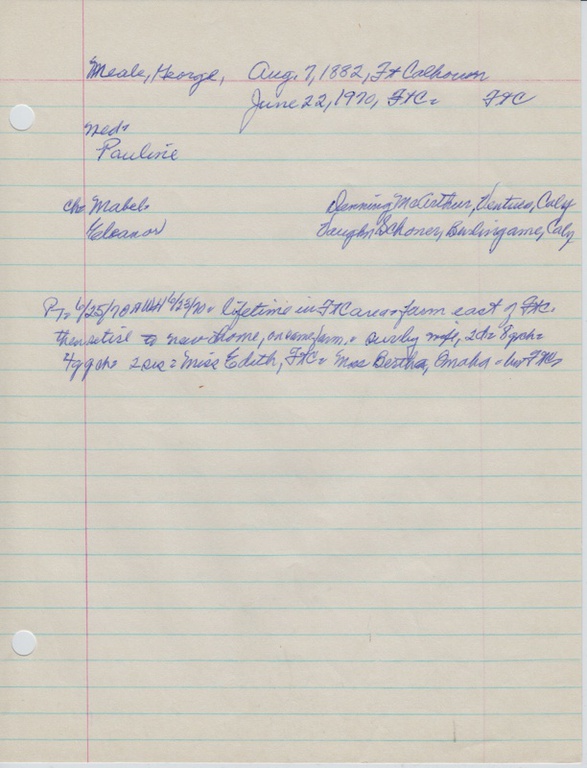 Meale, George, Aug. 7, 1882, Ft Calhoun
June 22, 1970, FtC = FtC
Med =
Pauline
chs Mabel = Denning McArthur, Ventura, Calif
Eleanor Vaughn Schoner, Burlingame, Calif
PT = 6/25/70 6/25/70 = lifetime in FtC area = farm east of FtC.
then retire to new home, on same farm. = surv by wife, 2ch = 8gch =
4ggch 2sis = Miss Edith, FtC = Miss Bertha, Omaha = bur FtC